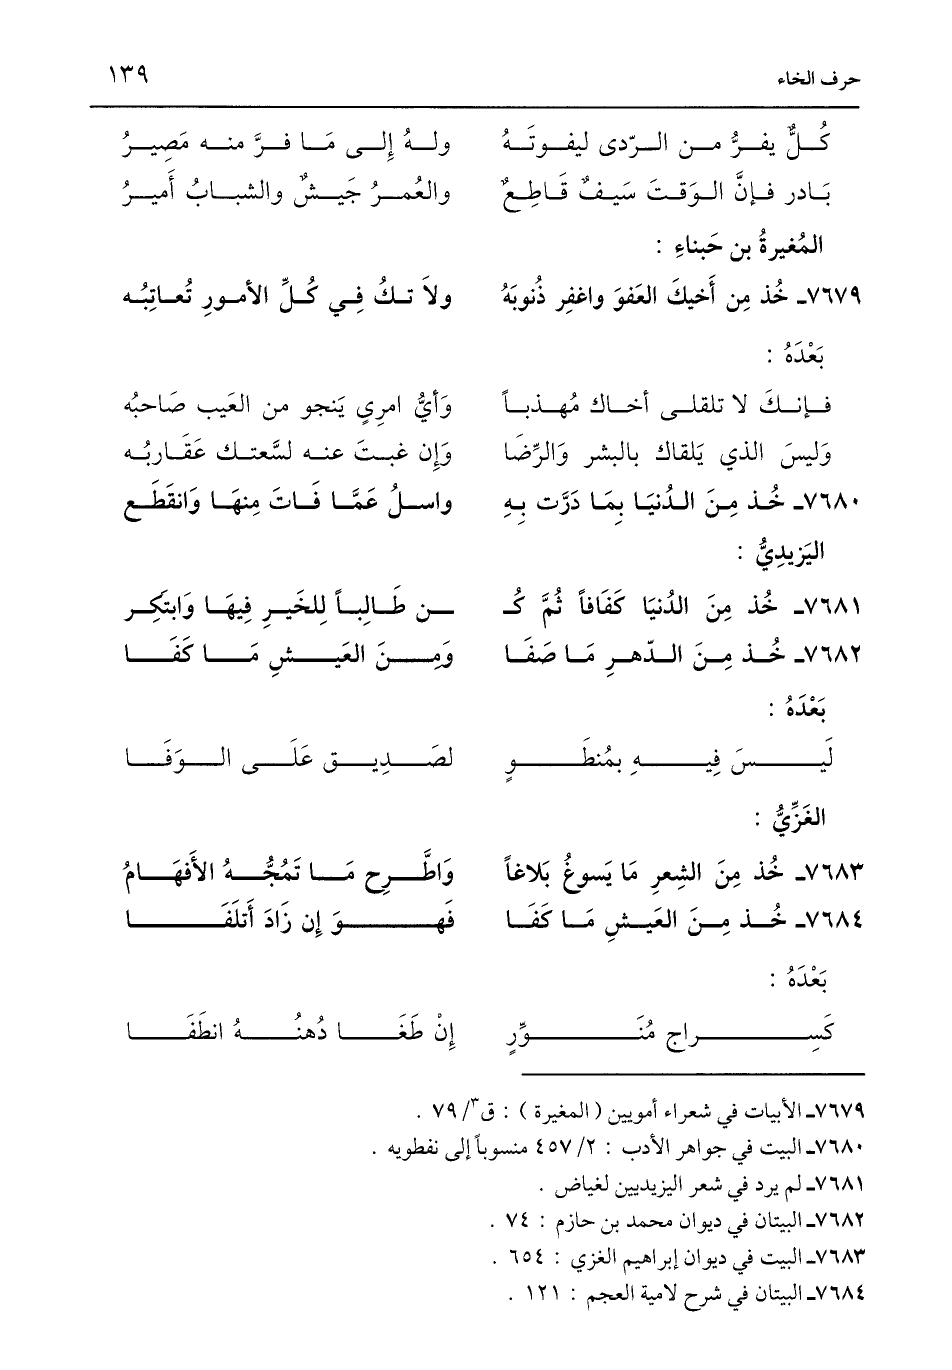 حرف الخاء ١٣٩
كُلٌّ يفرُّ من الرّدى ليفوتَهُ ولهُ إلى مَا فرَّ منه مَصِيرُ
بَادر فإنَّ الوَقتَ سَيفٌ قَاطِعٌ والعُمرُ جَيشٌ والشبابُ أَميرُ
المُغيرةُ بن حَبناءِ :
٧٦٧٩ـ خُذ مِن أَخيكَ العَفوَ واغفِر ذُنوبَهُ ولاَ تكُ فِي كُلِّ الأمورِ تُعاتِبُه
بَعْدَهُ :
فإنكَ لا تلقى أخاك مُهذباً وَأيُّ امرِي يَنجو من العَيب صَاحبُه
وَليسَ الذي يَلقاك بالبشر وَالرِّضَا وَإن غبتَ عنه لسَّعتك عَقَاربُه
٧٦٨٠ـ خُذ مِنَ الدُنيَا بِمَا دَرَّت بِهِ واسلُ عَمَّا فَاتَ مِنهَا وَانقَطَع
اليَزيدِيُّ :
٧٦٨١ـ خُذ مِنَ الدُنيَا كَفَافاً ثُمَّ كُـ ـن طَالِباً لِلخَيرِ فِيهَا وَابتكِر
٧٦٨٢ـ خُذ مِنَ الدّهرِ مَا صَفَا وَمِنَ العَيشِ مَا كَفَا
بَعْدَهُ :
لَيسَ فِيهِ بمُنطَوٍ لصَديق عَلَى الوَفَا
الغَزِّيُّ :
٧٦٨٣ـ خُذ مِنَ الشِعرِ مَا يَسوغُ بَلاغاً وَاطَّرِح مَا تَمُجُّهُ الأَفهَامُ
٧٦٨٤ـ خُذ مِنَ العَيشِ مَا كَفَا فَهوَ إن زَادَ أَتلَفَا
بَعْدَهُ :
كَسِراج مُنَوِّرٍ إنْ طَغَا دُهنُهُ انطَفَا
٧٦٧٩ـ الأبيات في شعراء أمويين ( المغيرة ) : ق٣/ ٧٩ .
٧٦٨٠ـ البيت في جواهر الأدب : ٢/ ٤٥٧ منسوباً إلى نفطويه .
٧٦٨١ـ لم يرد في شعر اليزيديين لغياض .
٧٦٨٢ـ البيتان في ديوان محمد بن حازم : ٧٤ .
٧٦٨٣ـ البيت في ديوان إبراهيم الغزي : ٦٥٤ .
٧٦٨٤ـ البيتان في شرح لامية العجم : ١٢١ .